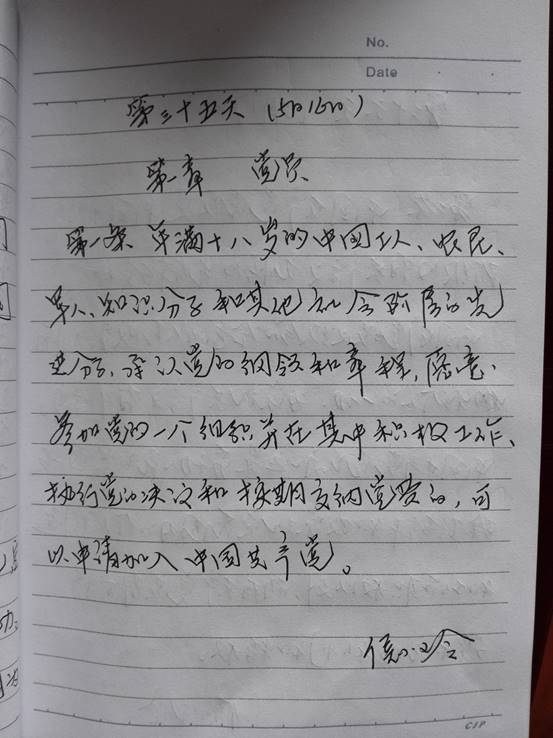 No.
Date
第三十五天 (5月16日)
第一章 党员
第一条 年满十八岁的中国工人、农民、
军人、知识分子和其他社会阶层的先
进分子,承认党的纲领和章程,愿意
参加党的一个组织并在其中积极工作、
执行党的决议和按期交纳党费的,可
以申请加入中国共产党。